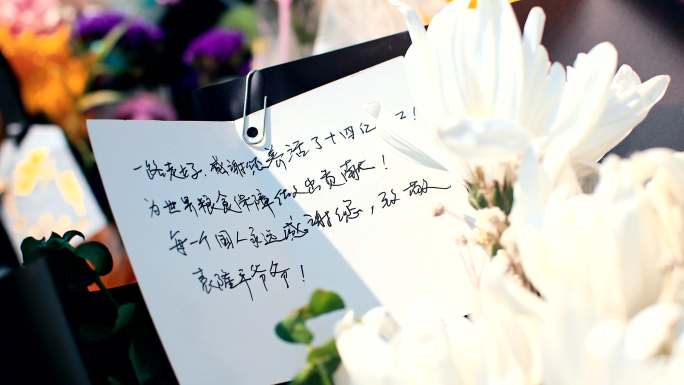 一路走好,感谢您养活了十四亿人!
为世界粮食保障做出贡献!
每一个国人永远感谢您,致敬
袁隆平爷爷!